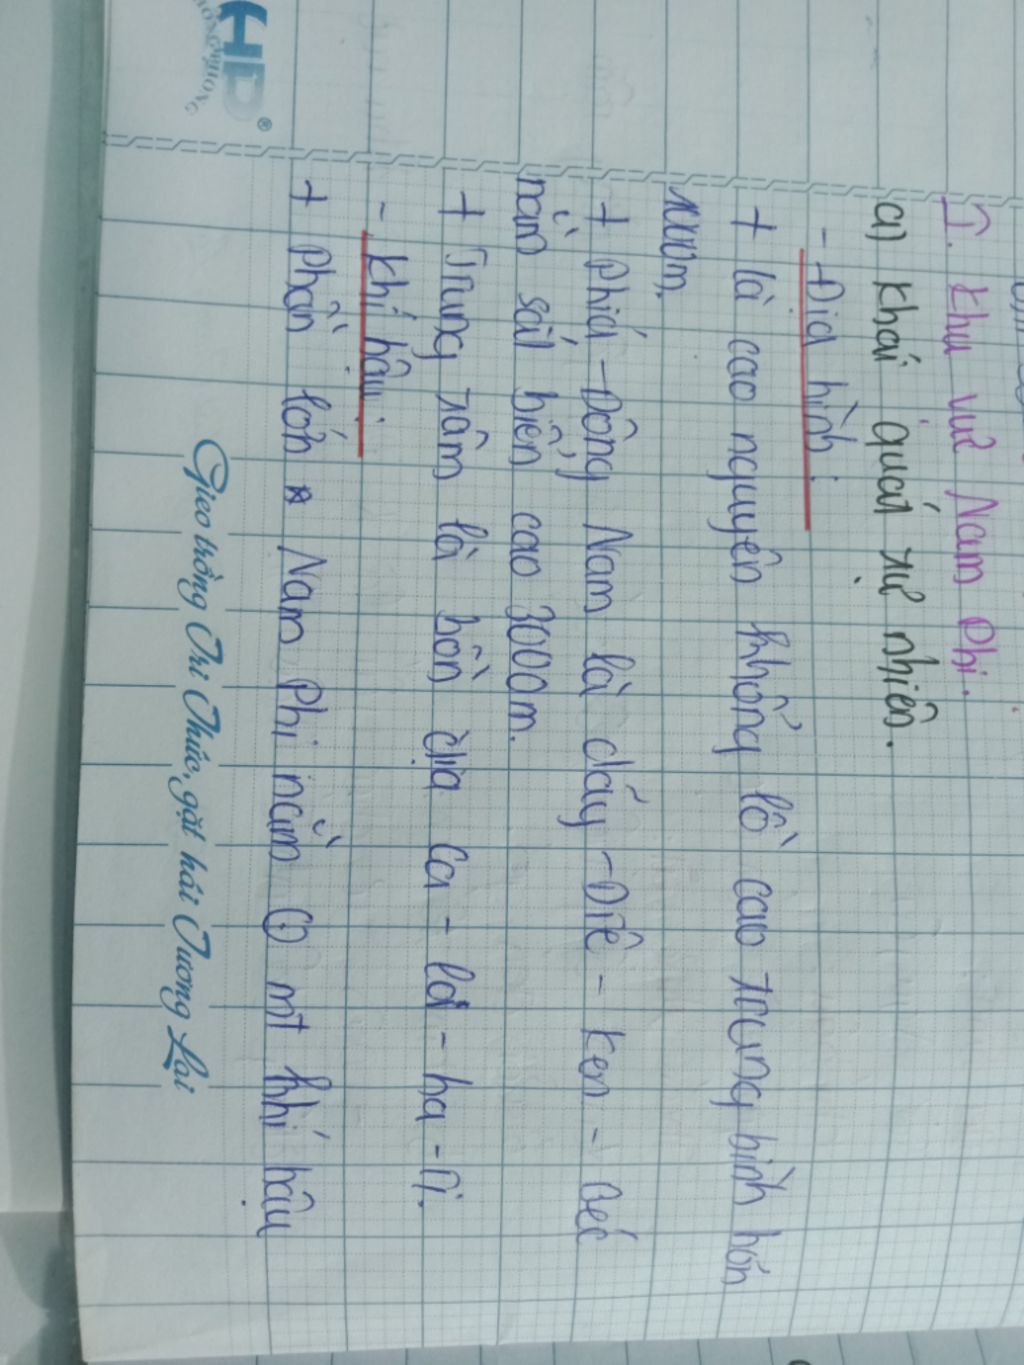 I. Khu vực Nam Phi.
a) Khái quát tự nhiên.
- Địa hình:
+ là cao nguyên khổng lồ cao trung bình hơn
1000m.
+ Phiá Đông Nam là dãy Đrê - Ken - Béc
nằm sát biển cao 3000m.
+ Trung tâm là bồn địa Ca - la - ha - ri.
- Khí hậu:
+ Phần lớn Nam Phi nằm ở mt khí hậu
Gieo trồng Tri Thức, gặt hái Tương Lai
HỒNG PHONG
HD®